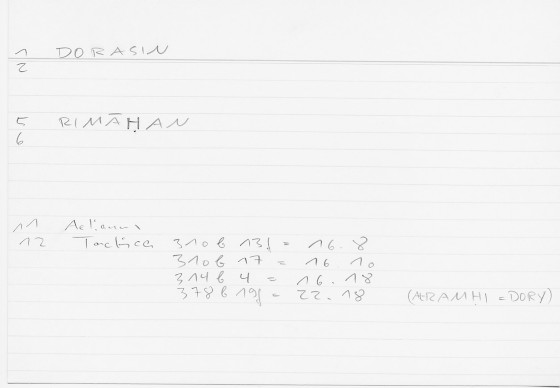 1 DORASIN
2
5 RIMĀḤAN
6
11 Aelianus
12 Tactica 310 b 13f = 16.8
310 b 17 = 16.10
314 b 4 = 16.18
378 b 19f = 22.18 (ARAMHI = DORY)